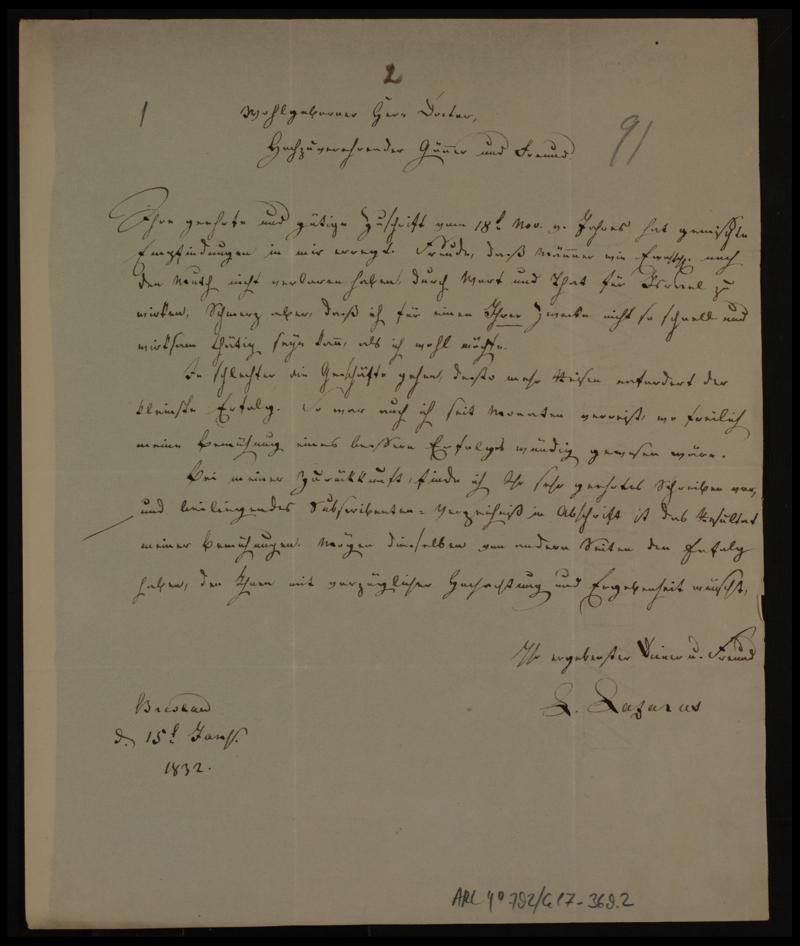 2
1
Wohlgeborner Herr Doctor,
91
Hochzuverehrender Gönner und Freund
Ihre geehrte und gütige Zuschrift vom 18t Nov. v. Jahres hat gemischte
Empfindungen in mir erregt. Freude, daß Männer wie noch
den Muth nicht verloren haben, durch Wort und That für Israel zu
wirken, Schmerz aber, daß ich für einen Ihrer Zwecke nicht so schnell und
wirksam thätig seyn kann, als ich wohl möchte.
Je schlechter die Geschäfte gehen, desto mehr Reisen erfordert der
kleinste Erfolg. So war auch ich seit Monaten verreißt, wo freilich
meine Bemühung eines bessern Erfolgs würdig gewesen wäre.
Bei meiner Zurückkunft, finde ich Ihr sehr geehrtes Schreiben vor,
und beiliegendes Subscribenten-Verzeichniß in Abschrift ist das Resultat
meiner Bemühungen. Mögen dieselben von andern Seiten den Erfolg
haben, den Ihnen mit vorzüglicher Hochachtung und Ergebenheit wünscht,
Ihr ergebenster Diener u. Freund
L. Lazarus
Breslau
d. 15t
1832.
ARC 4° 792/G17-369.2